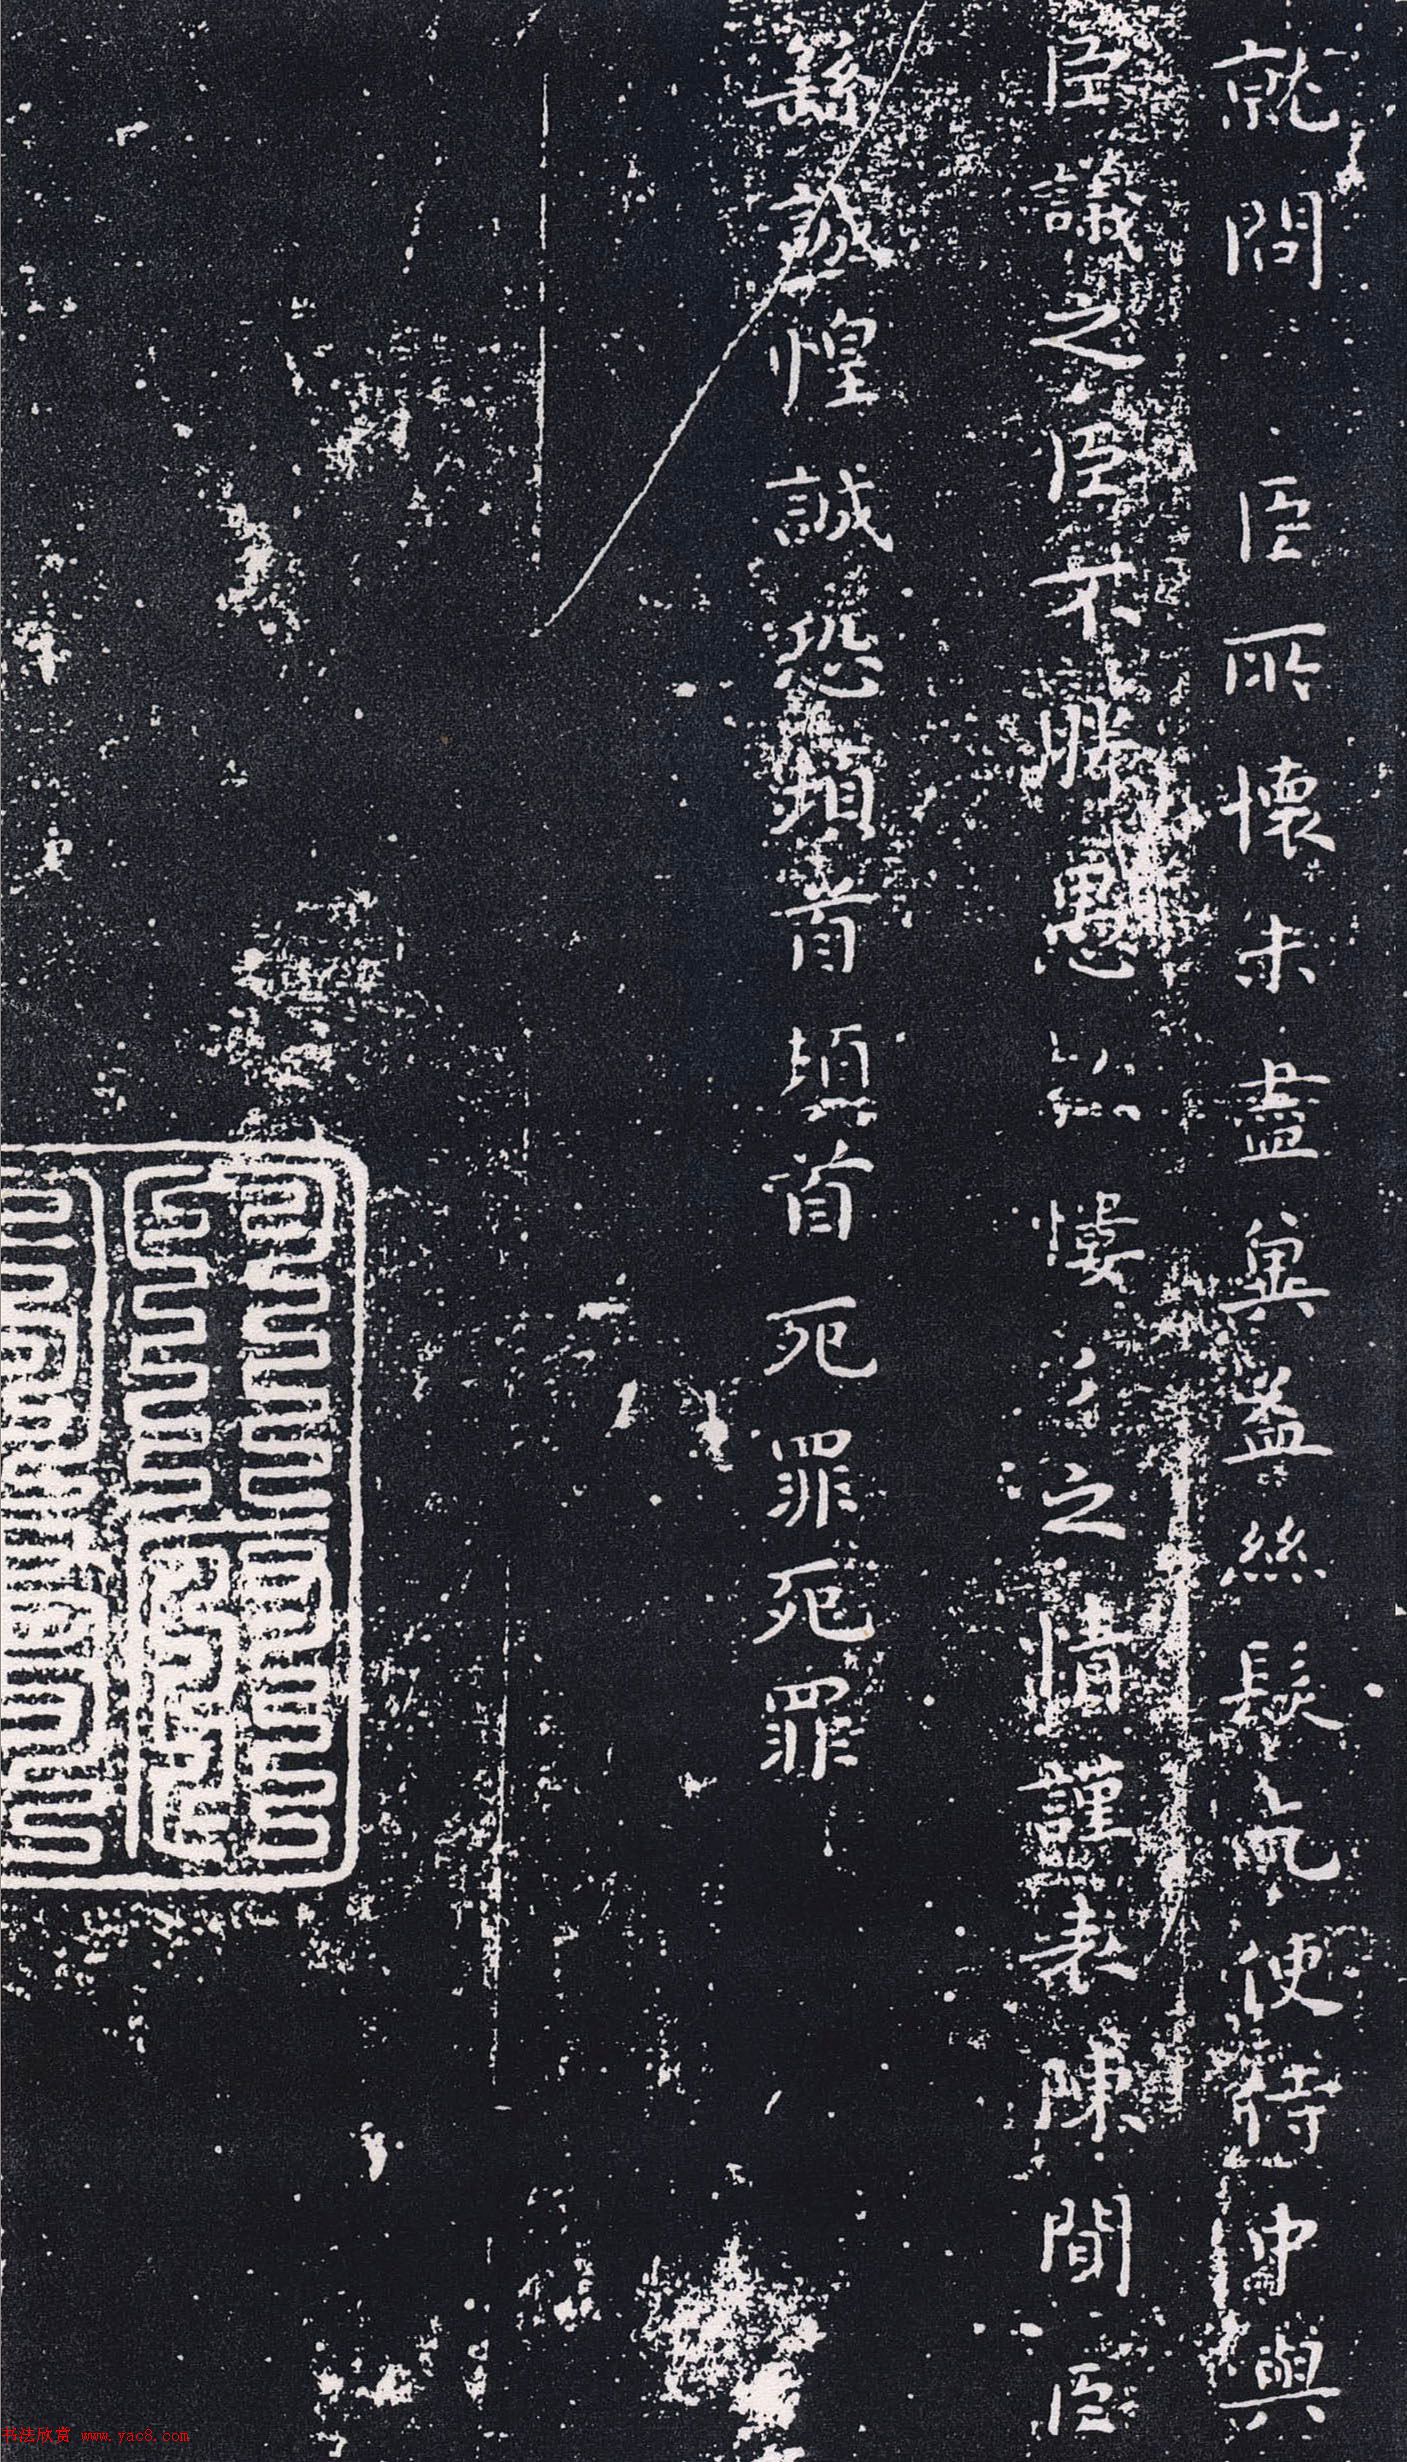 就問 臣所懷未盡兾益絲髮乞使侍中與
臣議之臣不勝愚 慺慺之情謹表陳聞臣
繇誠惶誠恐頓首頓首死罪死罪
书法欣赏 www.yac8.com